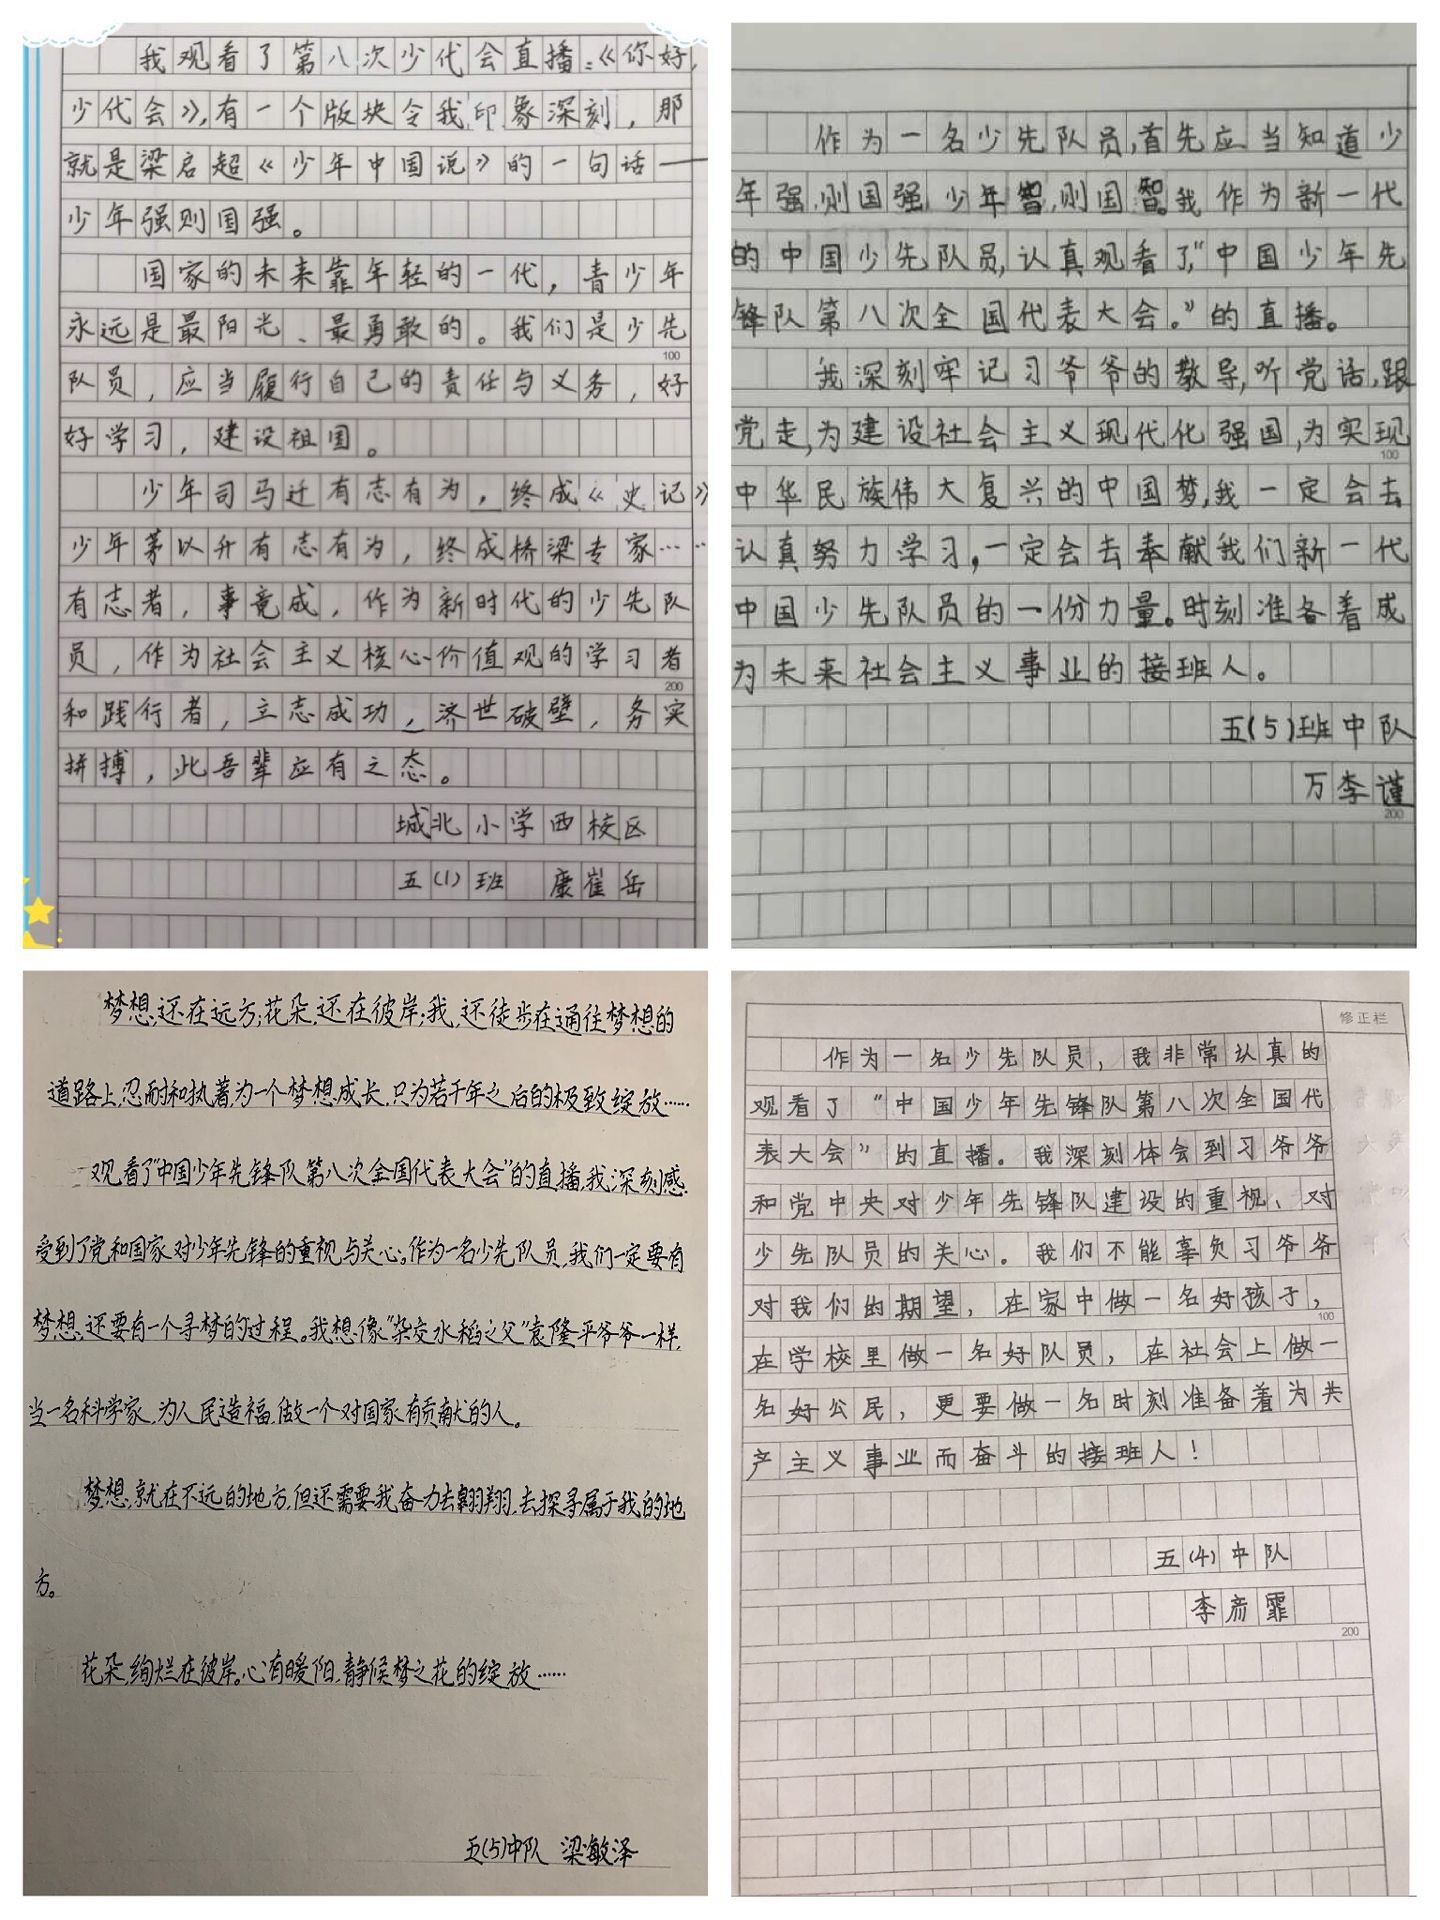 我观看了第八次少代会直播：《你好，
少代会》，有一个版块令我印象深刻，那
就是梁启超《少年中国说》的一句话——
少年强则国强。
国家的未来靠年轻的一代，青少年
永远是最阳光、最勇敢的。我们是少先
100
队员，应当履行自己的责任与义务，好
好学习，建设祖国。
少年司马迁有志有为，终成《史记》
少年茅以升有志有为，终成桥梁专家……
有志者，事竟成，作为新时代的少先队
员，作为社会主义核心价值观的学习者
200
和践行者，立志成功，济世破壁，务实
拼搏，此吾辈应有之态。
城北小学西校区
五(1)班 康崔岳
作为一名少先队员,首先应当知道少
年强,则国强,少年智,则国智。我作为新一代
的中国少先队员,认真观看了“中国少年先
锋队第八次全国代表大会。”的直播。
我深刻牢记习爷爷的教导,听党话,跟
党走,为建设社会主义现代化强国,为实现
100
中华民族伟大复兴的中国梦,我一定会去
认真努力学习,一定会去奉献我们新一代
中国少先队员的一份力量。时刻准备着成
为未来社会主义事业的接班人。
五(5)班中队
万李谨
200
梦想,还在远方;花朵,还在彼岸;我,还徒步在通往梦想的
道路上,忍耐和执著,为一个梦想成长,只为若干年之后的极致绽放……
观看了“中国少年先锋队第八次全国代表大会”的直播,我深刻感
受到了党和国家对少年先锋的重视与关心。作为一名少先队员,我们一定要有
梦想,还要有一个寻梦的过程。我想像“杂交水稻之父”袁隆平爷爷一样,
当一名科学家,为人民造福,做一个对国家有贡献的人。
梦想,就在不远的地方,但还需要我奋力去翱翔,去探寻属于我的地
方。
花朵,绚烂在彼岸。心有暖阳,静候梦之花的绽放……
五(5)中队 梁敏泽
修正栏
作为一名少先队员，我非常认真的
观看了“中国少年先锋队第八次全国代
表大会”的直播。我深刻体会到习爷爷
和党中央对少年先锋队建设的重视、对
少先队员的关心。我们不能辜负习爷爷
对我们的期望，在家中做一名好孩子，
100
在学校里做一名好队员，在社会上做一
名好公民，更要做一名时刻准备着为共
产主义事业而奋斗的接班人！
五(4)中队
李彦霏
200